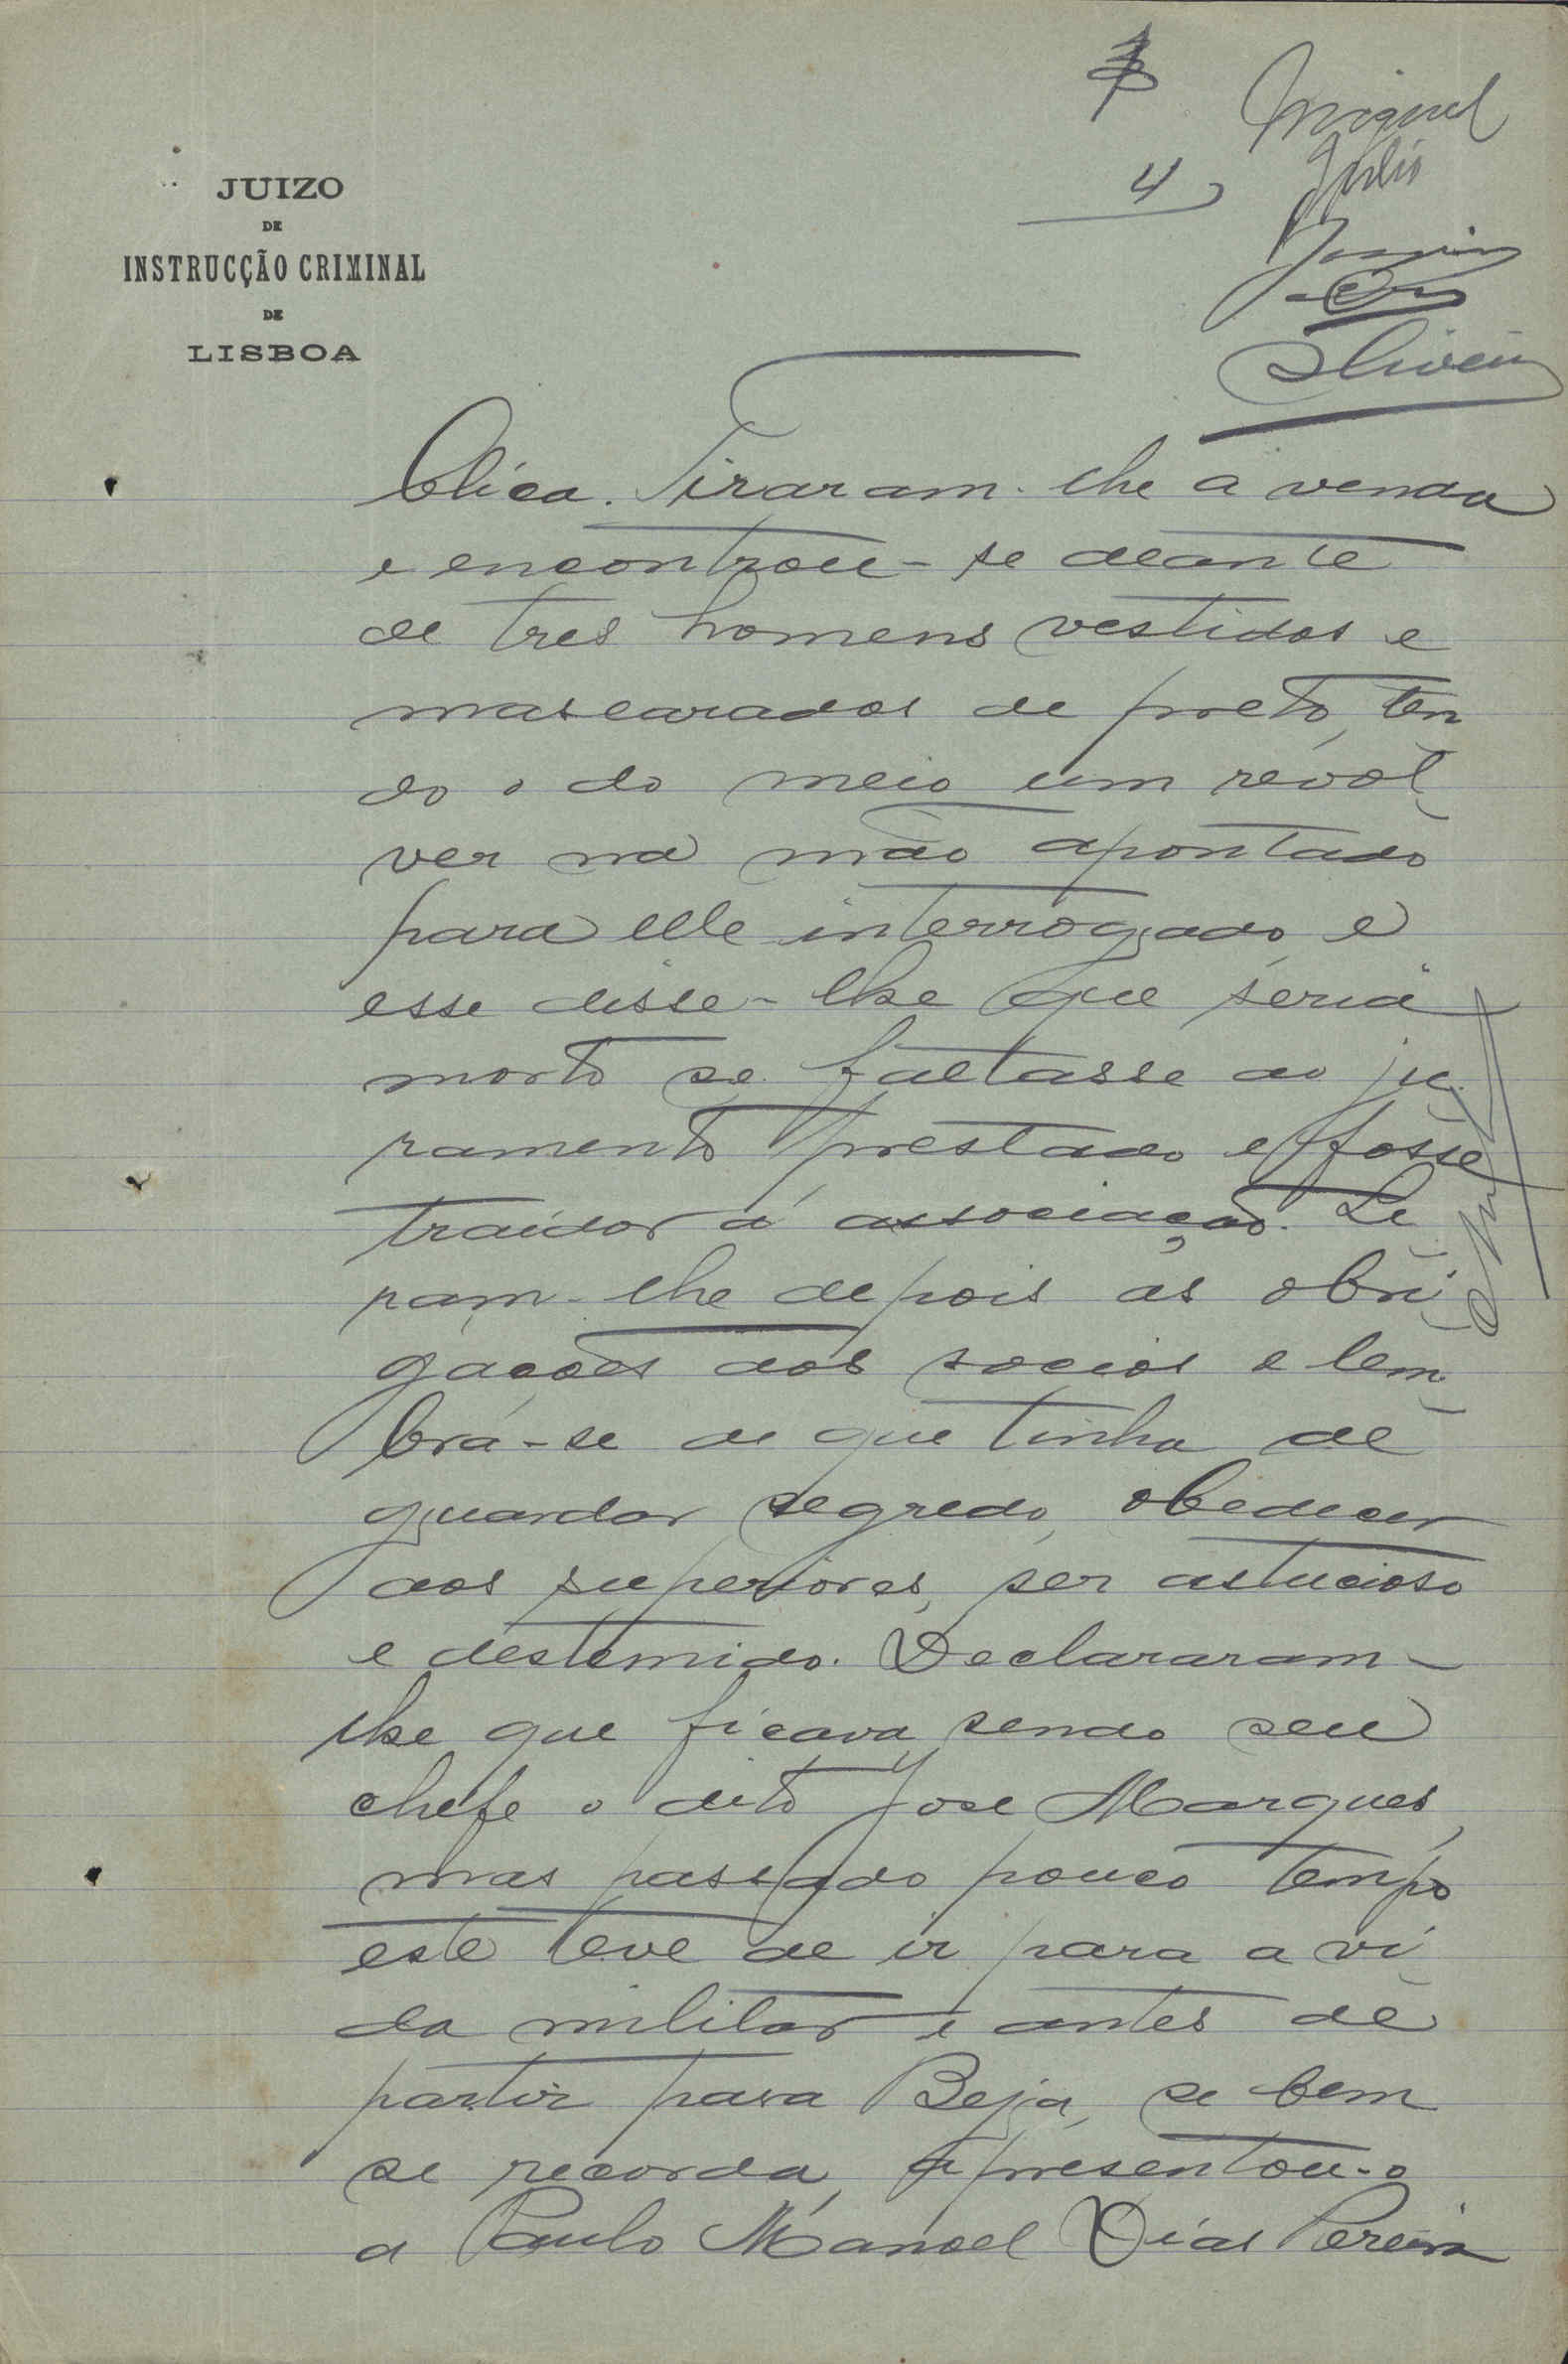 4
Miguel
Julio
JUIZO
DE
INSTRUCÇÃO CRIMINAL
DE
LISBOA
Oliveira
blica. Tiraram-lhe a venda
e encontrou-se deante
de tres homens vestidos e
mascarados de preto, ten
do o do meio um revol
ver na mão apontado
para elle interrogado e
esse disse-lhe que seria
morto se faltasse ao ju
ramento prestado e fosse
traidor á associação. Le
ram-lhe depois as obri
gações dos socios e lem
bra-se de que tinha de
guardar segredo, obedecer
aos superiores, ser astucioso
e destemido. Declararam-
lhe que ficava sendo seu
chefe o dito José Marques,
mas passado pouco tempo
este teve de ir para a vi
da militar e antes de
partir para Beja, se bem
se recorda, apresentou-o
a Paulo Manoel Dias Pereira